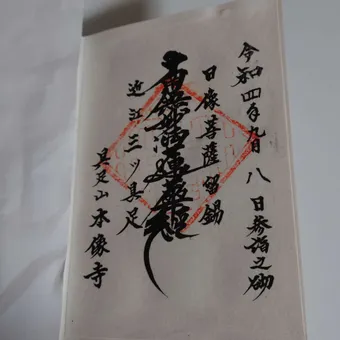 令和四年九月八日参詣之砌
日像菩薩留錫
南無妙法蓮華経
近江三ッ具足
具足山本像寺